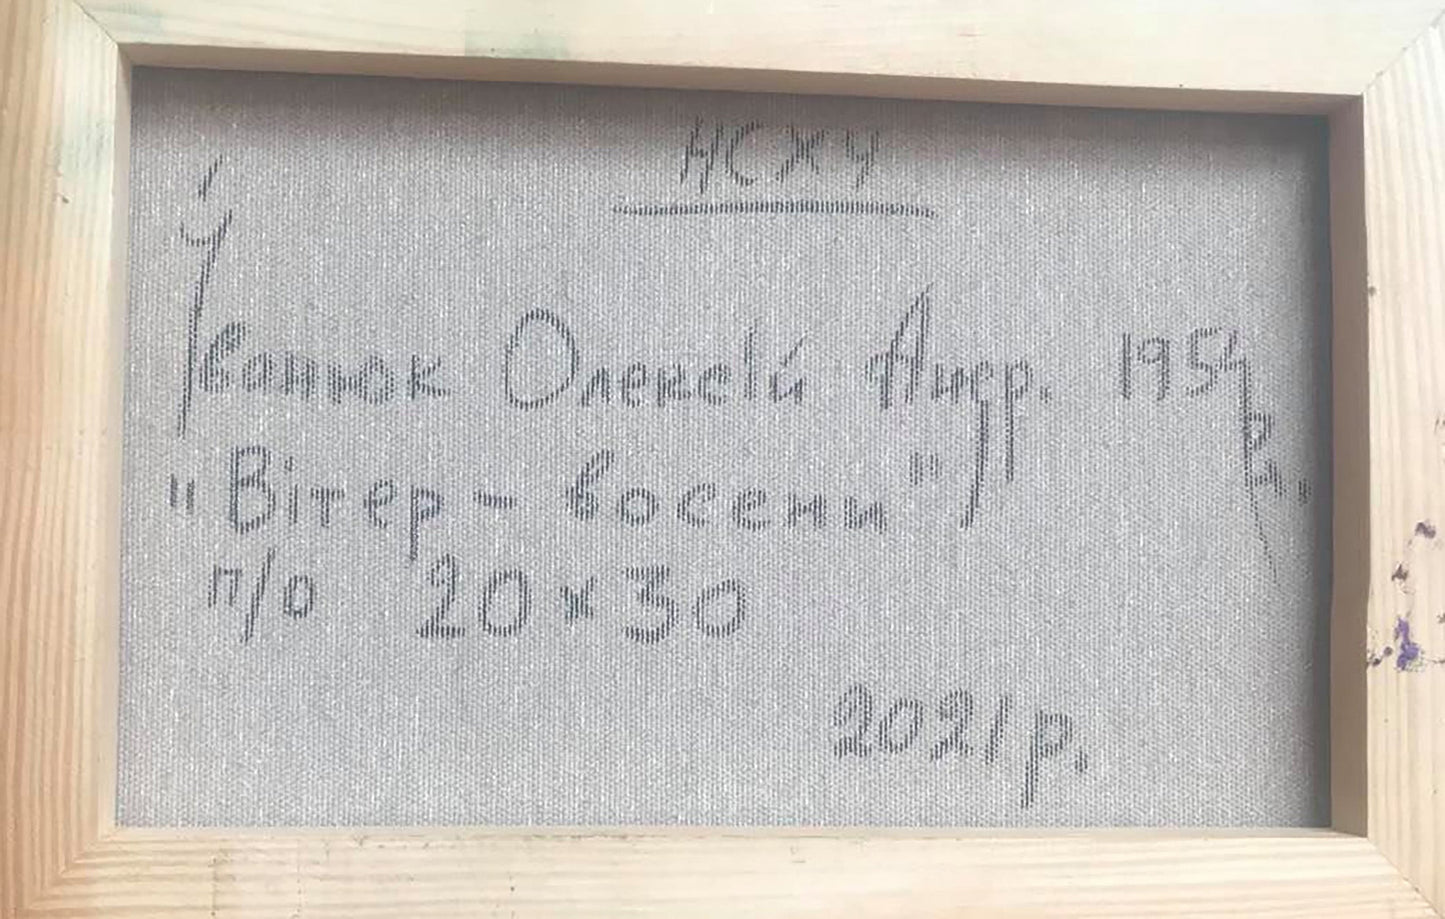 НСХУ
Іванюк Олексій Андр. 1954
р.н.
"Вітер - восени"
п/о 20х30
2021р.